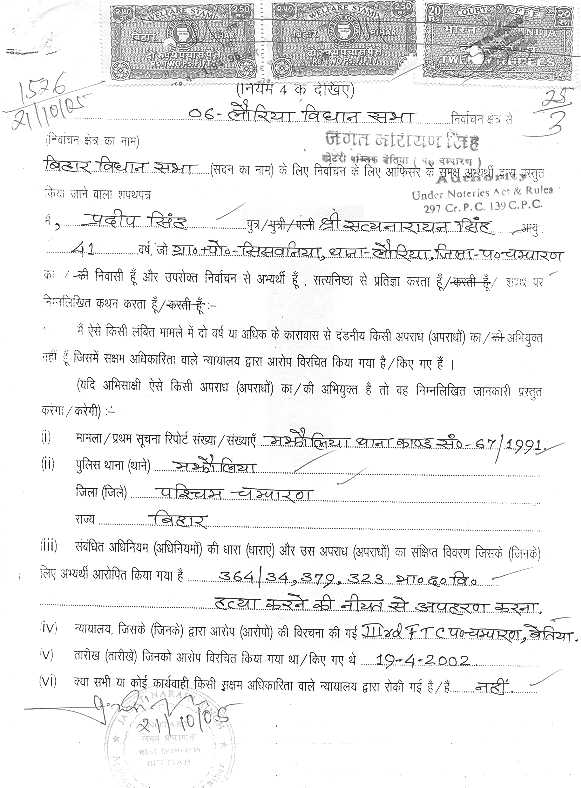 WELFARE STAMP
WELFARE STAMP
COURT FEE
BIHAR
BIHAR
भारत
INDIA
TWO RUPEES
1526
21/10/05
(नियम 4 के देखिए)
25/3
06- लौरिया विधान सभा निर्वाचन क्षेत्र से
(निर्वाचन क्षेत्र का नाम)
जगत नारायण सिंह
नोटरी पब्लिक बेतिया ( प० चम्पारण )
बिहार विधान सभा (सदन का नाम) के लिए निर्वाचन के लिए आफिसर के समक्ष अभ्यर्थी द्वारा प्रस्तुत
किया जाने वाला शपथपत्र
Under Noteries Act & Rules
297 Cr.P.C. 139 C.P.C.
मैं, प्रदीप सिंह पुत्र/पुत्री/पत्नी श्री सत्यनारायन सिंह आयु
41 वर्ष, जो ग्रा०+पो०-सिसवनिया, थाना-लौरिया, जिला-प०चम्पारण
का /-की निवासी हूँ और उपरोक्त निर्वाचन से अभ्यर्थी हूँ , सत्यनिष्ठा से प्रतिज्ञा करता हूँ/करती हूँ/ शपथ पर
निम्नलिखित कथन करता हूँ/करती हूँ :-
मैं ऐसे किसी लंबित मामले में दो वर्ष या अधिक के कारावास से दंडनीय किसी अपराध (अपराधों) का/की अभियुक्त
नहीं हूँ जिसमें सक्षम अधिकारिता वाले न्यायालय द्वारा आरोप विरचित किया गया है/किए गए हैं ।
(यदि अभिसाक्षी ऐसे किसी अपराध (अपराधों) का/की अभियुक्त है तो वह निम्नलिखित जानकारी प्रस्तुत
करेगा/करेगी) :-
(i) मामला/प्रथम सूचना रिपोर्ट संख्या/संख्याएँ मझौलिया थाना काण्ड सं०-67/1991.
(ii) पुलिस थाना (थाने) मझौलिया
जिला (जिले) पश्चिम चम्पारण
राज्य बिहार
(iii) संबंधित अधिनियम (अधिनियमों) की धारा (धाराएं) और उस अपराध (अपराधों) का संक्षिप्त विवरण जिसके (जिनके)
लिए अभ्यर्थी आरोपित किया गया है 364/34, 379, 323 भा०द०वि०
हत्या करने की नीयत से अपहरण करना.
(iv) न्यायालय, जिसके (जिनके) द्वारा आरोप (आरोपों) की विरचना की गई IIIrd F T C प०चम्पारण, बेतिया.
(v) तारीख (तारीखें) जिनको आरोप विरचित किया गया था/किए गए थे 19-4-2002
(vi) क्या सभी या कोई कार्यवाही किसी सक्षम अधिकारिता वाले न्यायालय द्वारा रोकी गई है/हैं नहीं.
21/10/05